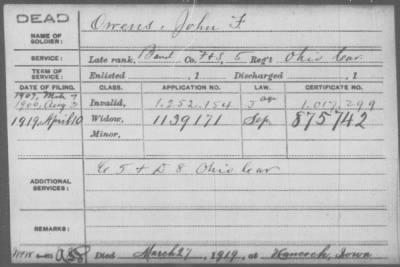 DEAD
Owens, John F.
NAME OF
SOLDIER:
SERVICE:
Late rank, Band Co. F&S, 5 Reg't Ohio Cav.
TERM OF
SERVICE:
Enlisted , 1 Discharged , 1
DATE OF FILING. CLASS. APPLICATION NO. LAW. CERTIFICATE NO.
1907, Mch 7
1900, Aug 3 Invalid, 1.252.154 1.017.299
1919 April 10 Widow, 1139171 Sep. 875742
Minor,
ADDITIONAL
SERVICES:
C 5 & D 8 Ohio Cav
REMARKS:
Died March 27, 1919, at Hancock, Iowa